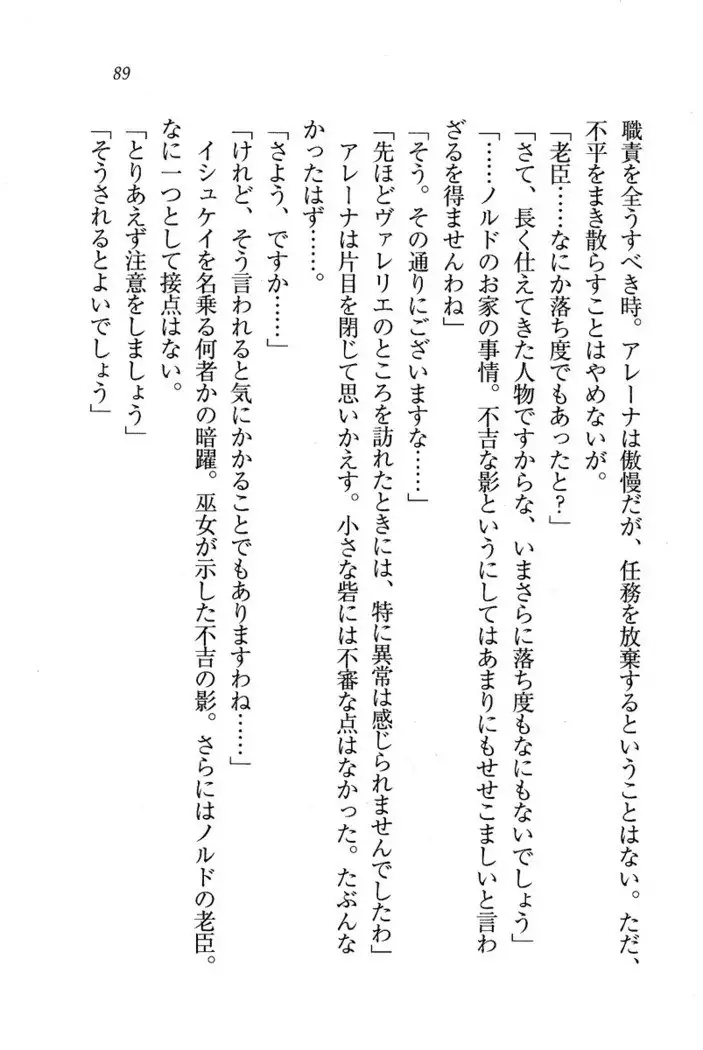 89
職責を全うすべき時。アレーナは傲慢だが、任務を放棄するということはない。ただ、
不平をまき散らすことはやめないが。
「老臣……なにか落ち度でもあったと？」
「さて、長く仕えてきた人物ですからな、いまさらに落ち度もなにもないでしょう」
「……ノルドのお家の事情。不吉な影というにしてはあまりにもせせこましいと言わ
ざるを得ませんわね」
「そう。その通りにございますな……」
「先ほどヴァレリエのところを訪れたときには、特に異常は感じられませんでしたわ」
アレーナは片目を閉じて思いかえす。小さな砦には不審な点はなかった。たぶんな
かったはず……。
「さよう、ですか……」
「けれど、そう言われると気にかかることでもありますわね……」
イシュケイを名乗る何者かの暗躍。巫女が示した不吉の影。さらにはノルドの老臣。
なに一つとして接点はない。
「とりあえず注意をしましょう」
「そうされるとよいでしょう」